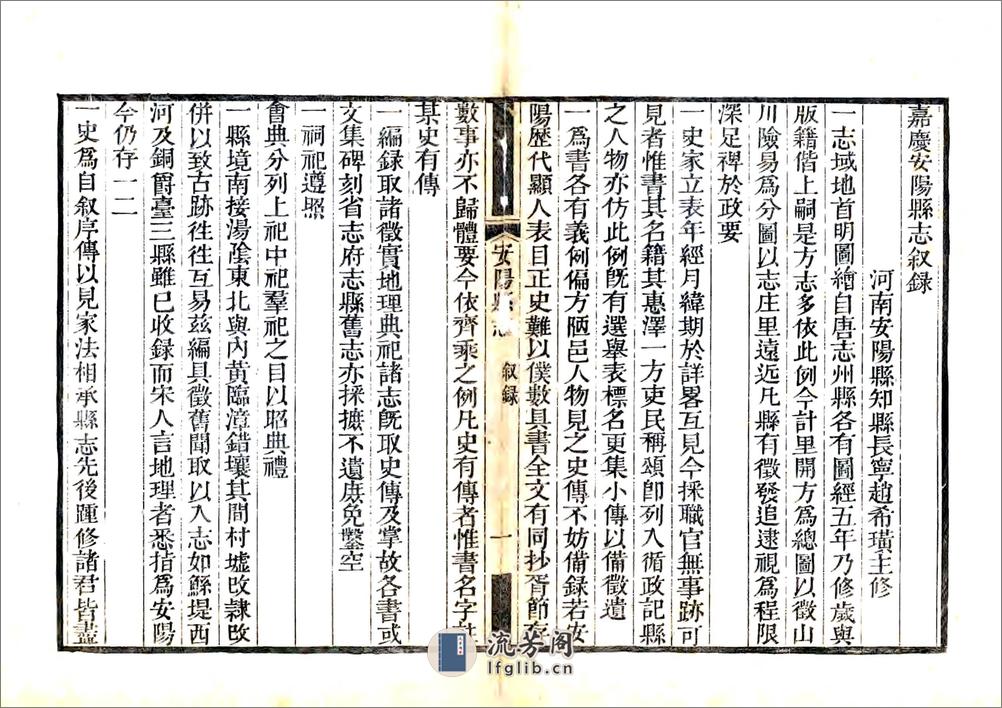 嘉慶安陽縣志叙録
河南安陽縣知縣長寧趙希璜主修
一志域地首明圖繪自唐志州縣各有圖經五年乃修歲與
版籍偕上嗣是方志多依此例今計里開方爲總圖以徵山
川險易爲分圖以志庄里遠近凡縣有徵發追逮視爲程限
深足裨於政要
一史家立表年經月緯期於詳畧互見今採職官無事跡可
見者惟書其名籍其惠澤一方吏民稱頌卽列入循政記縣
之人物亦仿此例旣有選舉表標名更集小傳以備徵遺
一爲書各有義例偏方陋邑人物見之史傳不妨備録若安
陽歷代顯人表目正史難以僕數具書全文有同抄胥節存
安陽縣志
叙録
一
數事亦不歸體要今依齊乘之例凡史有傳者惟書名字注
某史有傳
一編録取諸徵實地理典祀諸志旣取史傳及掌故各書或
文集碑刻省志府志縣舊志亦採摭不遺庶免鑿空
一祠祀遵照
會典分列上祀中祀羣祀之目以昭典禮
一縣境南接湯陰東北與內黃臨漳錯壤其間村墟改隸改
併以致古跡徃徃互易兹編具徵舊聞取以入志如鯀堤西
河及銅爵臺三縣雖已收録而宋人言地理者悉指爲安陽
今仍存一二
一史爲自叙序傳以見家法相承縣志先後踵修諸君皆盡
流芳阁
lfglib.cn